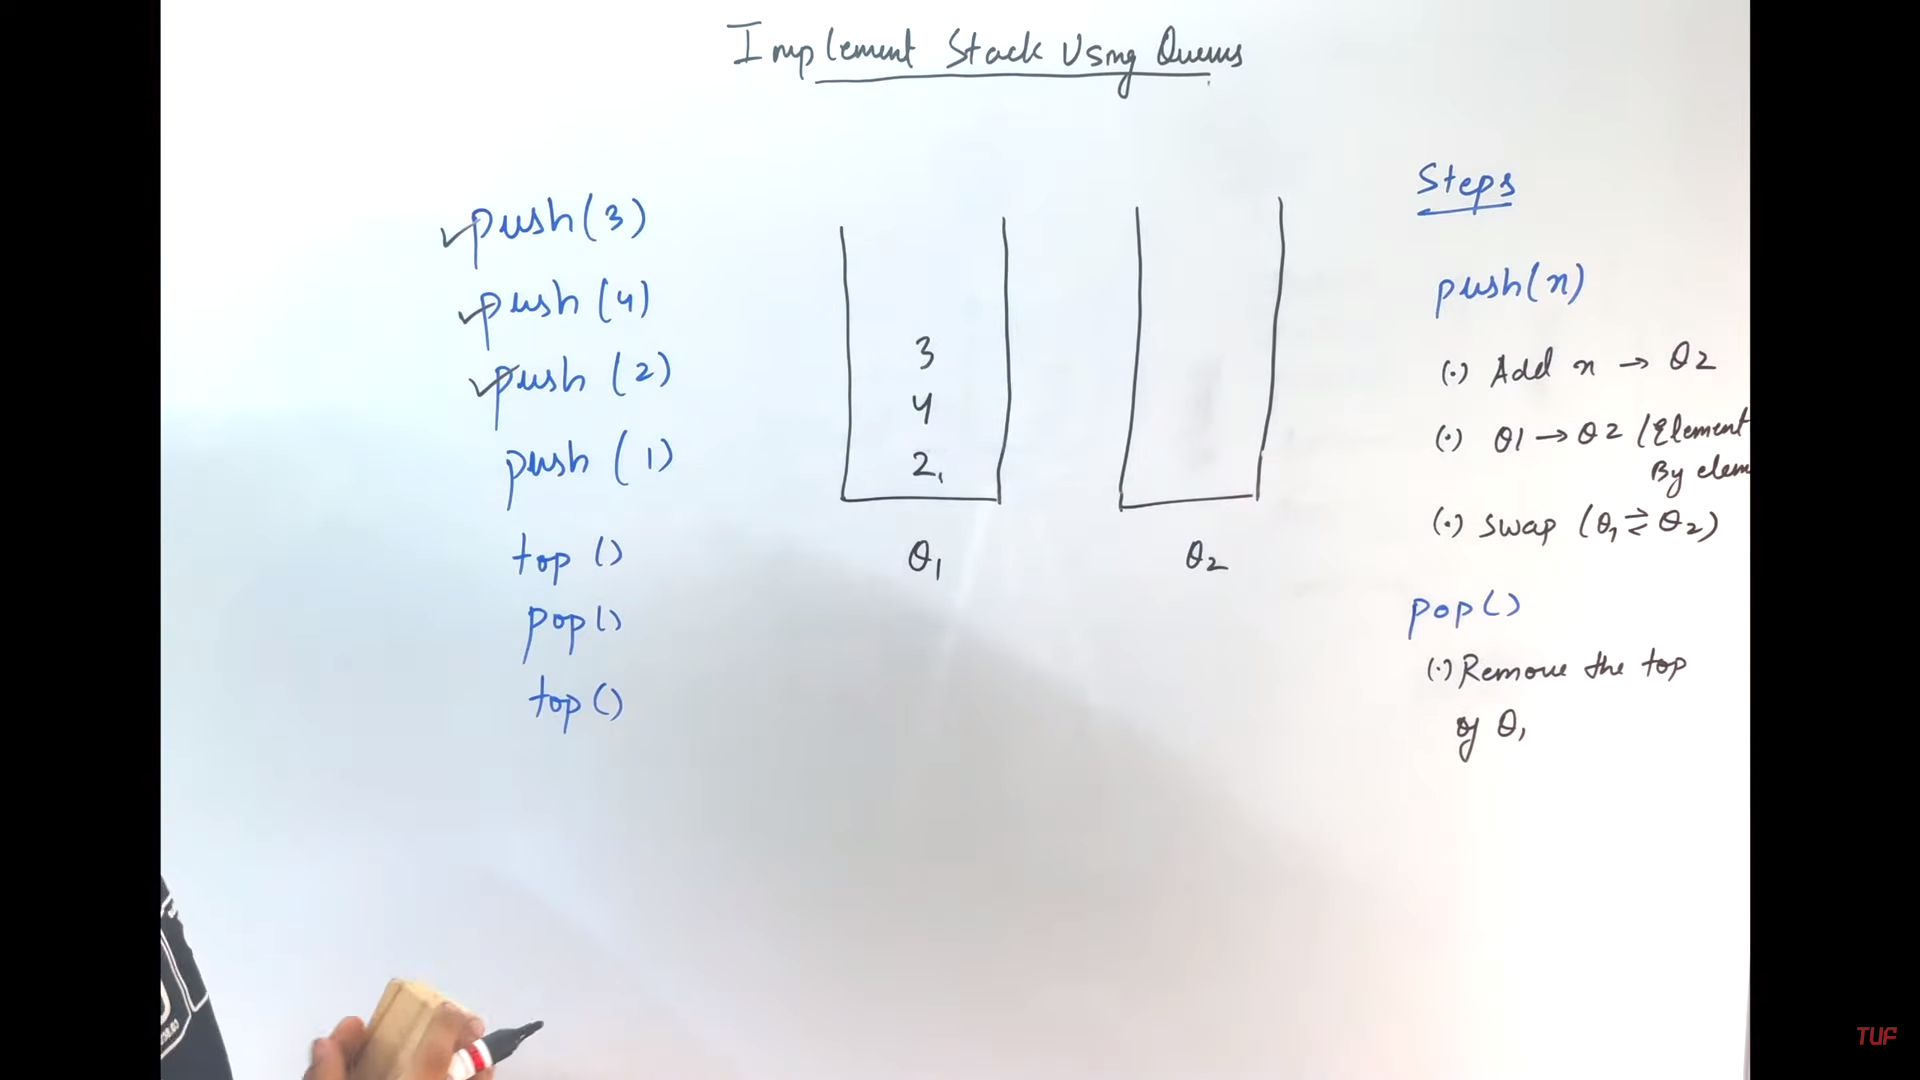 Implement Stack Using Queues
push(3)
push(4)
push(2)
push(1)
top()
pop()
top()
3
4
2
Q1
Q2
Steps
push(x)
(·) Add x → Q2
(·) Q1 → Q2 (Element
By elem
(·) swap (Q1 ⇄ Q2)
pop()
(·) Remove the top
of Q1
TUF